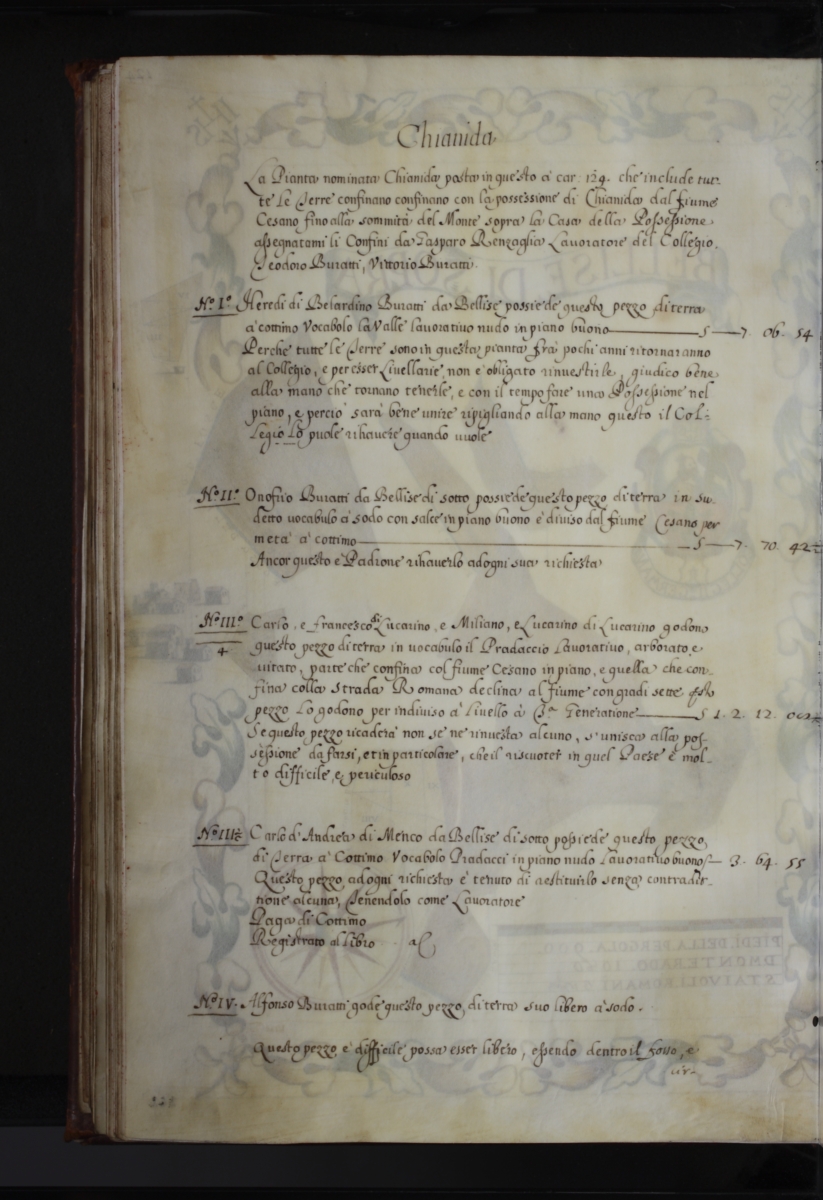 Chianida
La Pianta nominata Chianida posta in questo à car: 129. che include tut-
te le Terre confinano confinano con la possessione di Chianida dal fiume
Cesano fino alla sommità del Monte sopra la Casa della Possessione
assegnatomi li Confini da Gasparo Renzaglia Lauoratore del Collegio.
Teodoro Buratti, Vittorio Buratti.
N.º Iº Heredi di Belardino Buratti da Bellise possiede questo pezzo di terra
à cottimo Vocabolo la Valle lauoratiuo nudo in piano buono S 7. 06. 54
Perche tutte le Terre sono in questa pianta frà pochi anni ritornaranno
al Collegio, e per esser Liuellarie non è obligato rinuestirle, giudico bene
alla mano che tornano tenerle, e con il tempo fare una Possessione nel
piano, e perciò sarà bene unire ripigliando alla mano questo il Col-
legio Lo puole rihauere quando uuole
N.º IIº Onofrio Buratti da Bellise di sotto possiede questo pezzo di terra in su-
detto uocabulo à sodo con salce in piano buono è diuiso dal fiume Cesano per
metà à cottimo S 7. 70. 42
Ancor questo è Padrone rihauerlo ad ogni sua richiesta
N.º IIIº Carlo, e Francesco di Lucarino, e Miliano, e Lucarino di Lucarino godono
4 questo pezzo di terra in uocabulo il Pradaccio Lauoratiuo, arborato, e
uitato, parte che confina col fiume Cesano in piano, e quella che con-
fina colla strada Romana declina al fiume con gradi sette
pezzo Lo godono per indiuiso à liuello à 3ª Generatione S 1. 2. 12.
Se questo pezzo ricaderà non se ne inuesta alcuno, s'unisca alla pos-
sessione da farsi, et in particolare, che il riscuoter in quel Paese è mol-
to difficile, e periculoso
N.º III Carlo d'Andrea di Menco da Bellise di sotto possiede questo pezzo
di Terra à Cottimo Vocabolo Pradacci in piano nudo Lauoratiuo buono S 3. 64. 55
Questo pezzo ad ogni richiesta è tenuto di restituirlo senza contradit-
tione alcuna, Tenendolo come Lauoratore
Paga di Cottimo
Registrato al libro a C
N.º IV. Alfonso Buratti gode questo pezzo di terra suo libero à sodo.
Questo pezzo è difficile possa esser libero, essendo dentro il fosso, e